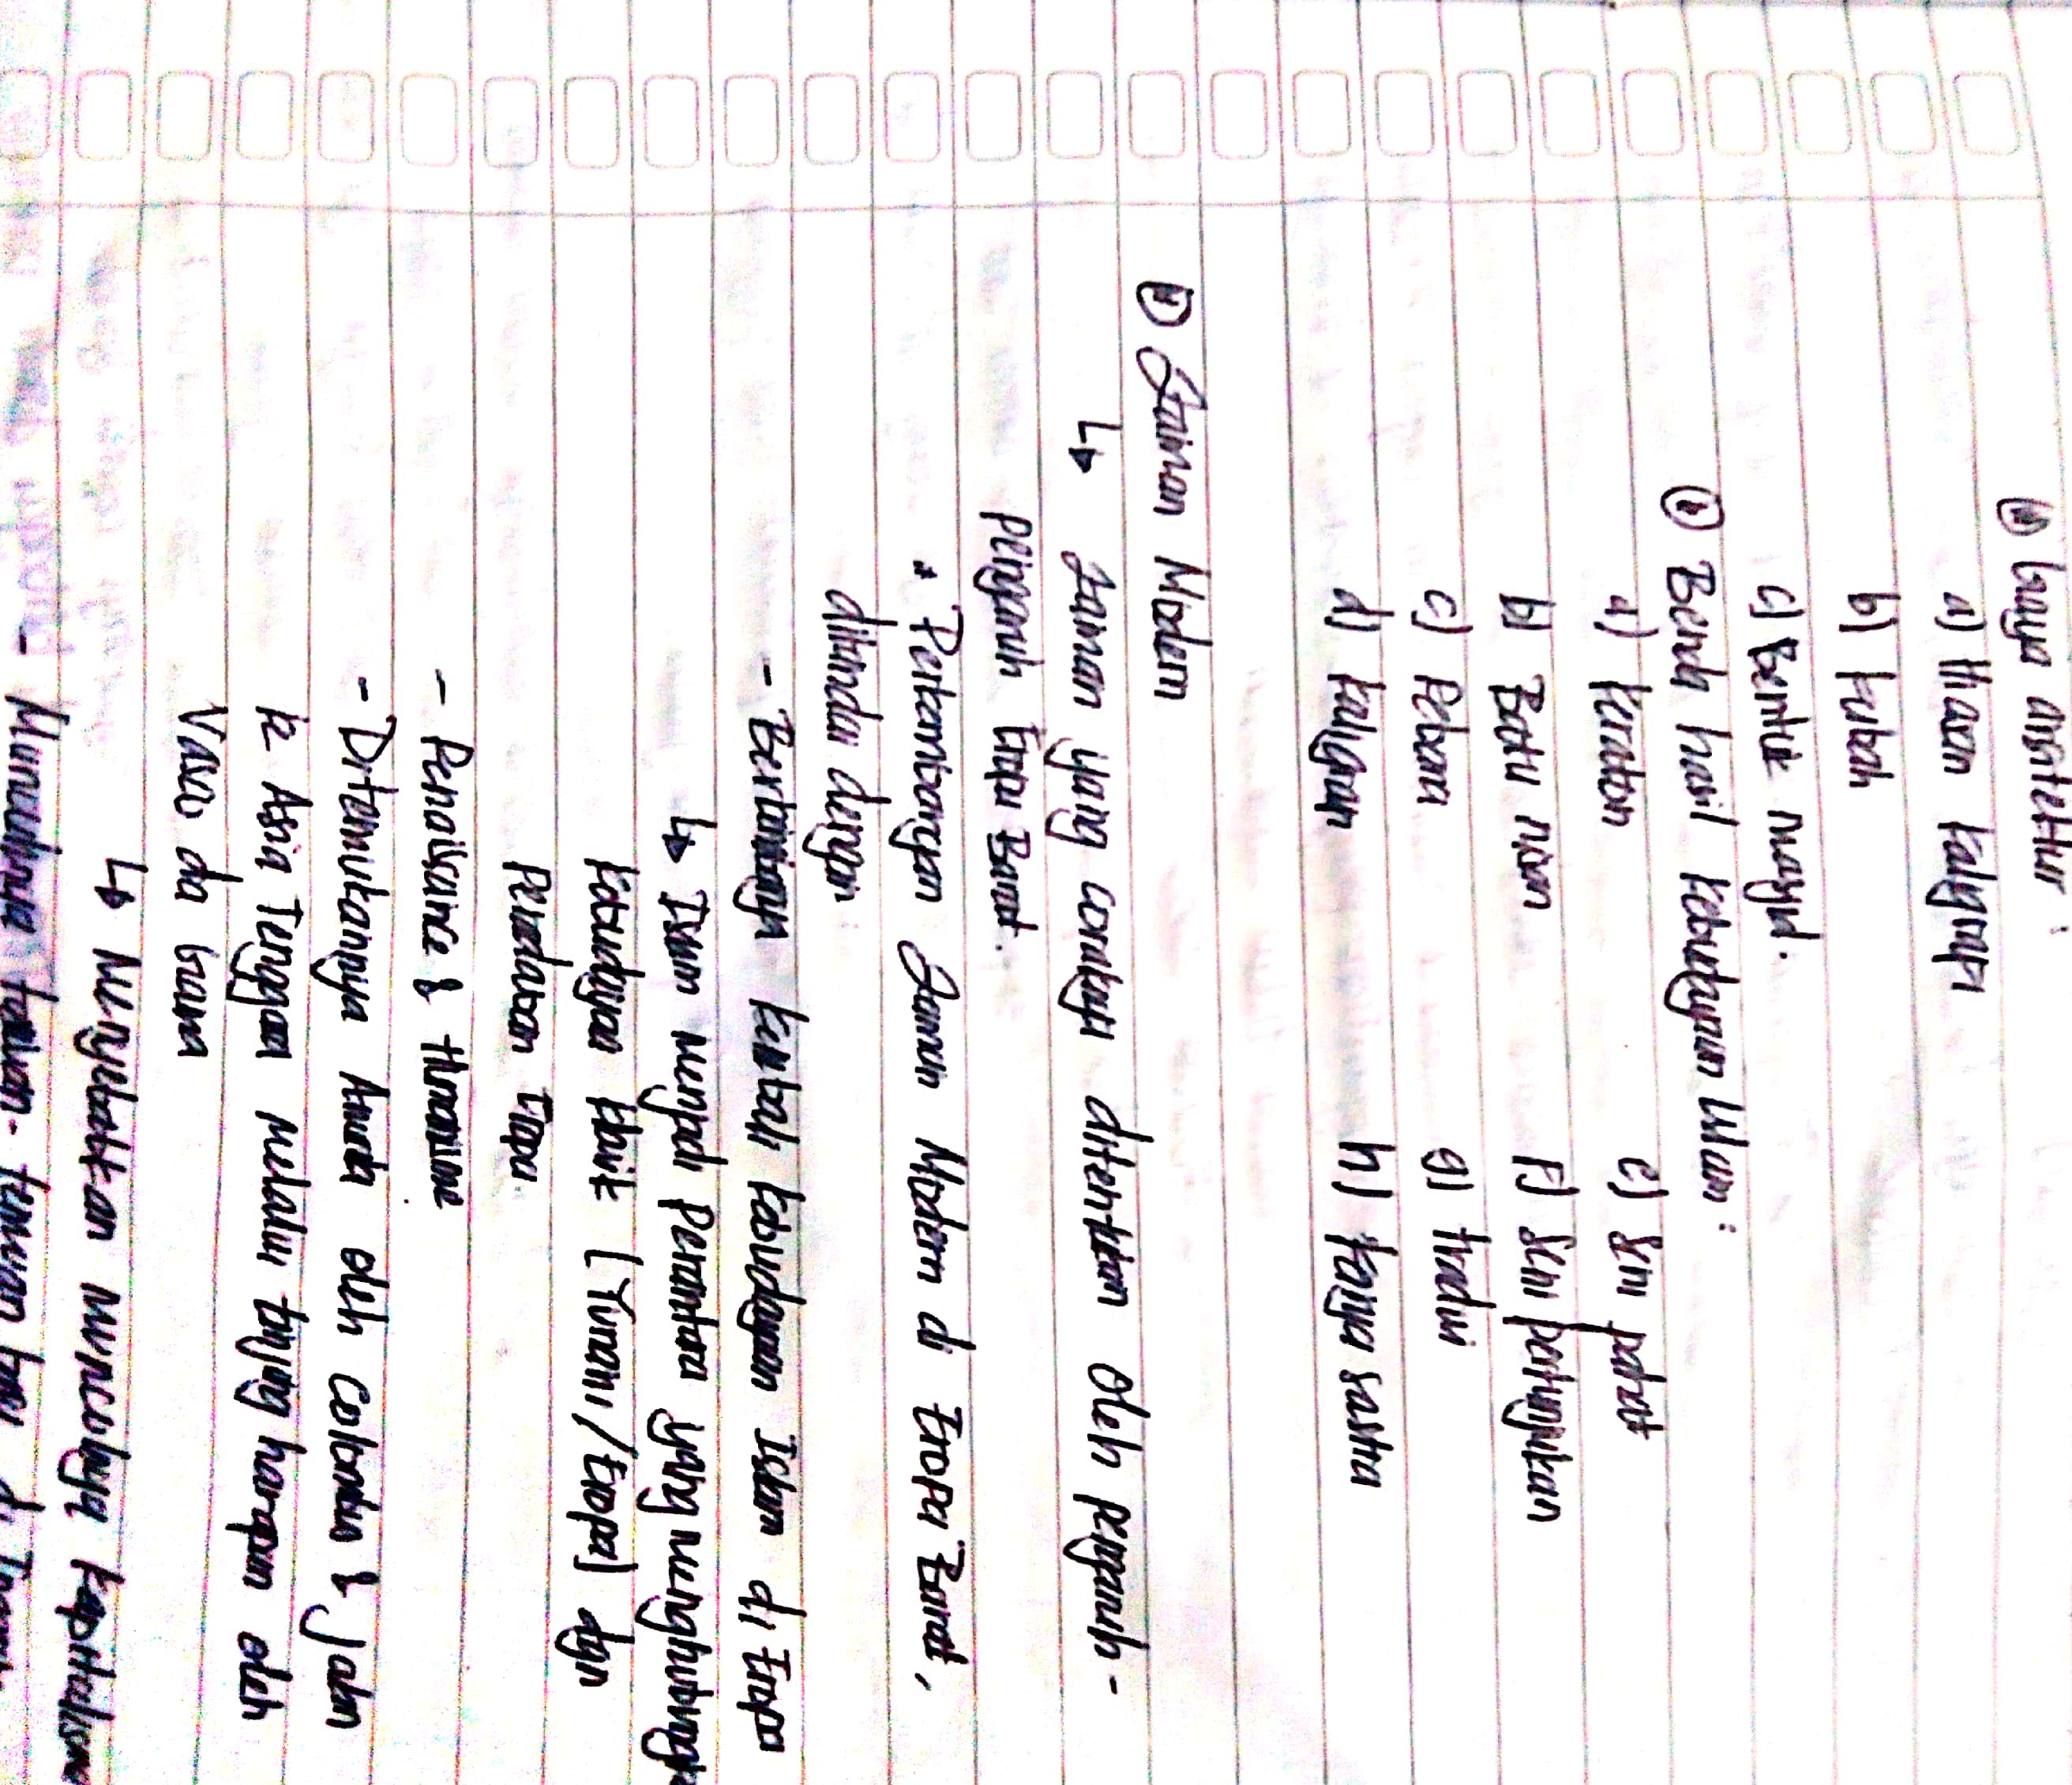 gaya arsitektur :
a) Hiasan kaligrapi
b) kubah
c) Bentuk masjid.
Benda hasil kebudayaan Islam :
a) Keraton e) Seni pahat
b) Batu nisan f) Seni pertunjukan
c) g) tradisi
d) kaligrapi h) karya sastra
Zaiman Modern
↳ Zaman yang coraknya ditentukan oleh pengaruh-
pengaruh Eropa Barat.
* Perkembangan Zaman Modern di Eropa Barat,
ditandai dengan
- Berkembangnya kembali kebudayaan Islam di Eropa
↳ Islam menjadi perantara yang menghubungkan
kebudayaan klasik (Yunani/Eropa) dgn
peradaban Eropa.
- Renaisance & Humanisme
- Ditemukannya Amerika oleh Colombus & Jalan
ke Asia Tenggara melalui tanjung harapan oleh
Vasco da Gama
↳ Menyebabkan munculnya kapitalisme
- Munculnya temuan-temuan baru di